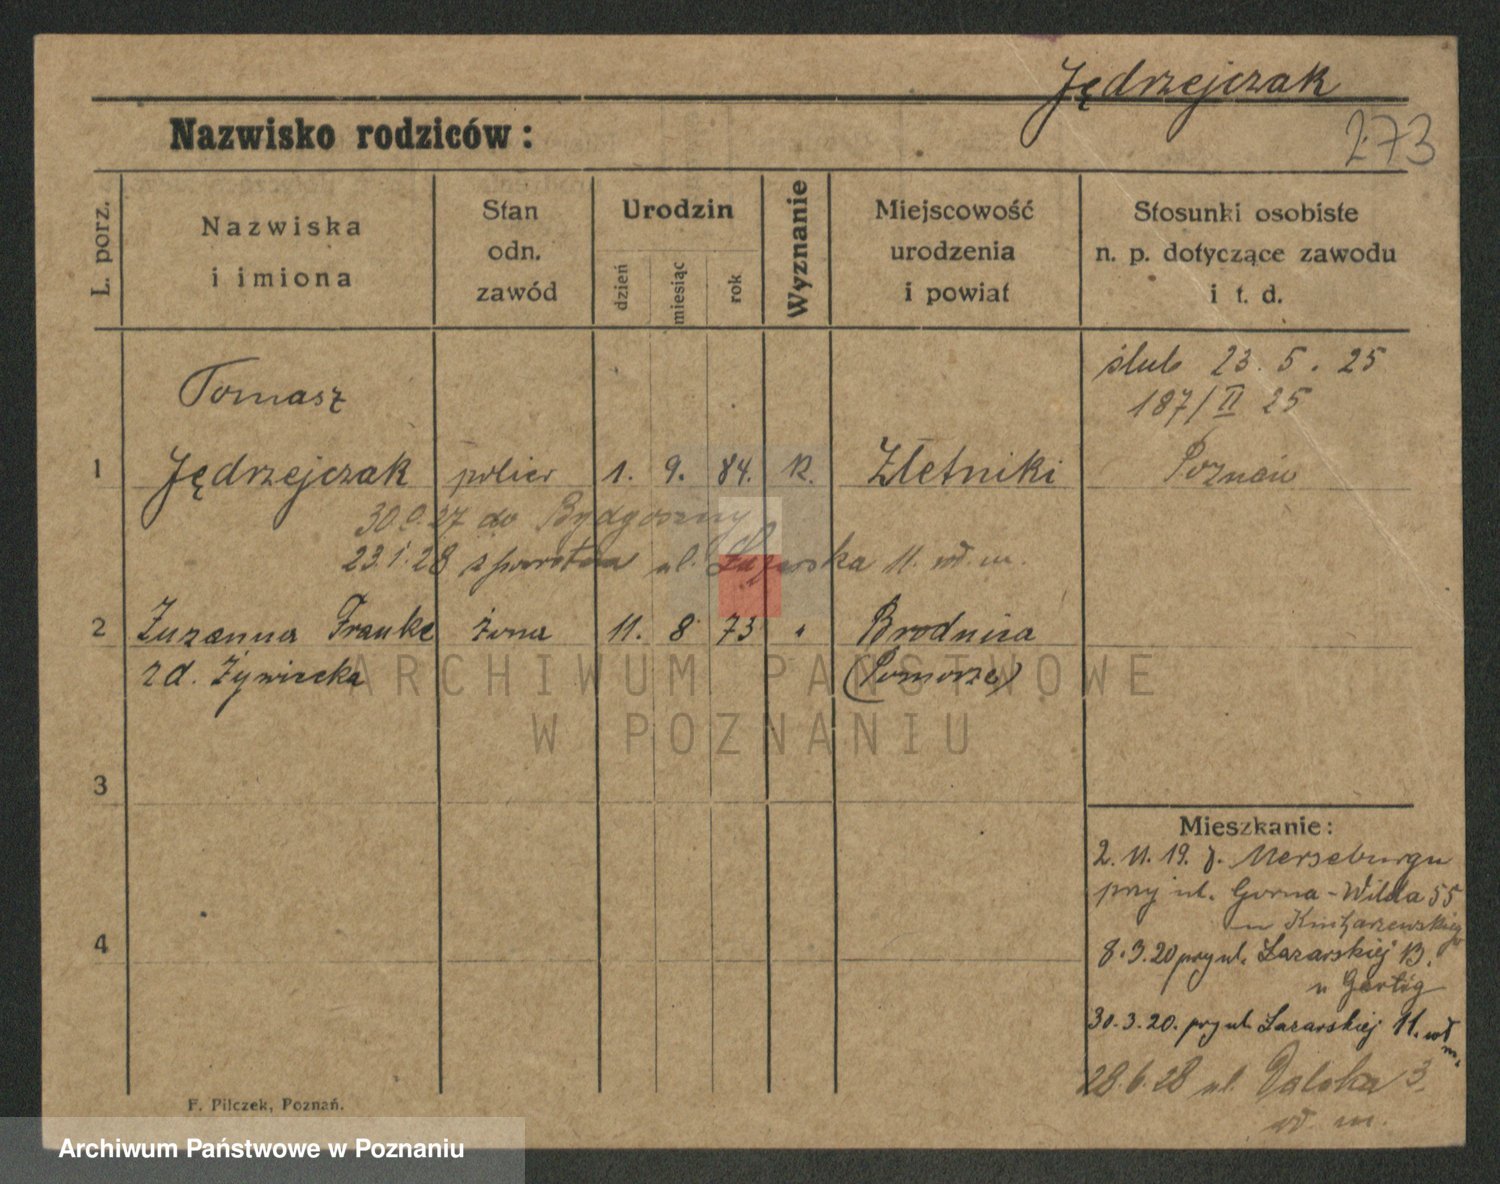 Jędrzejczak
273
Nazwisko rodziców:
L. porz.
Nazwiska
i imiona
Stan
odn.
zawód
Urodzin
dzień
miesiąc
rok
Wyznanie
Miejscowość
urodzenia
i powiat
Stosunki osobiste
n. p. dotyczące zawodu
i t. d.
ślub 23. 5. 25
187/II 25
Poznań
Tomasz
1 Jędrzejczak polier 1. 9. 84. k. Złotniki
30.9.27 do Bydgoszczy
23.1.28 z powrotem ul. Łazarska 11. wł. m.
2 Zuzanna Franke żona 11. 8 73 " Brodnica
zd. Żywicka (Pomorze)
3
4
Mieszkanie:
2. 11. 19. z. Merseburgu
przy ul. Gorna-Wilda 55
u
8.3.20 przy ul. Łazarskiej 13.
u Gertig
30.3.20. przy ul. Łazarskiej 11. wł.
m.
28.6.28 ul. 3.
wł. m.
F. Pilczek, Poznań.
ARCHIWUM PAŃSTWOWE
W POZNANIU
Archiwum Państwowe w Poznaniu